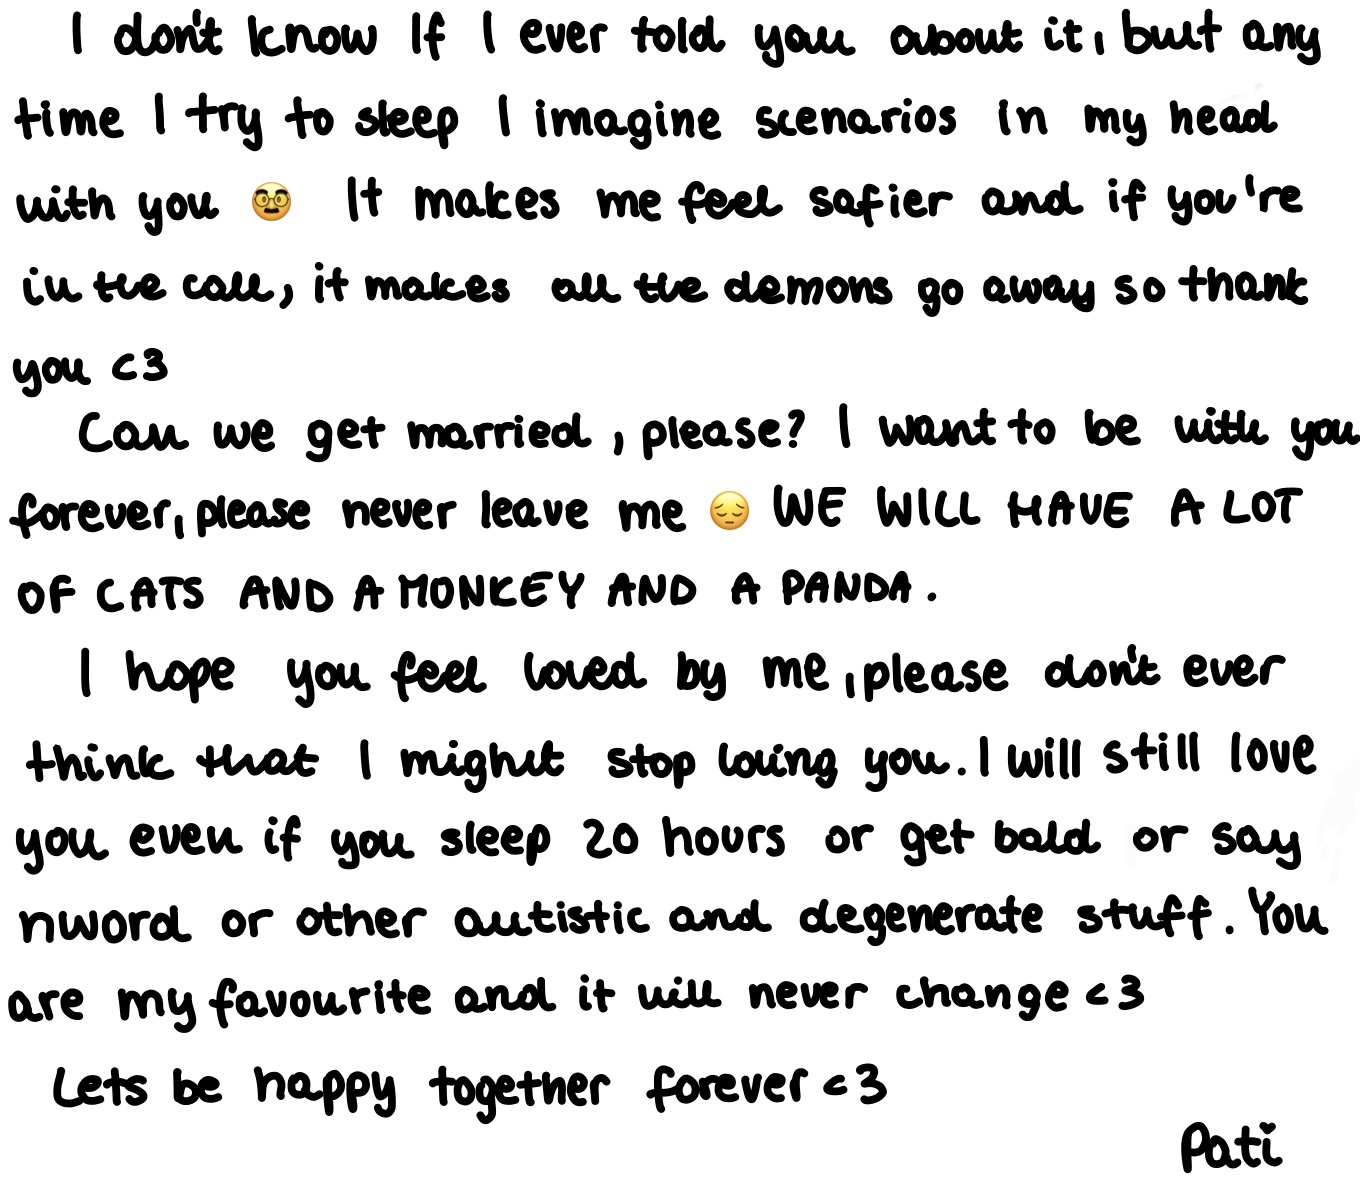 I don't know If I ever told you about it, but any
time I try to sleep I imagine scenarios in my head
with you 🥸 It makes me feel safier and if you're
in the call, it makes all the demons go away so thank
you <3
Can we get married, please? I want to be with you
forever, please never leave me 😔 WE WILL HAVE A LOT
OF CATS AND A MONKEY AND A PANDA.
I hope you feel loved by me, please don't ever
think that I might stop loving you. I will still love
you even if you sleep 20 hours or get bald or say
nword or other autistic and degenerate stuff. You
are my favourite and it will never change <3
Lets be happy together forever <3
Pati